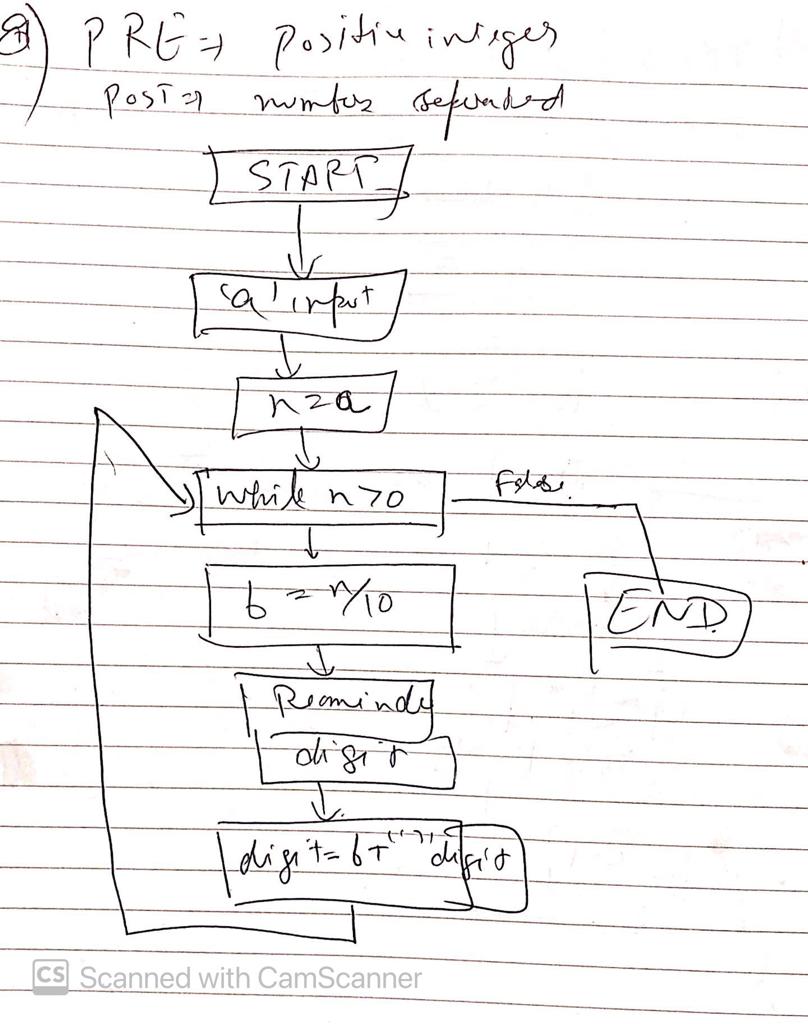 8) PRE => Positive integer
POST => number seperated
START
'a' input
n=a
while n>0
False
b = n/10
END
Reaminde
digit
digit = b+" "+digit
CS Scanned with CamScanner